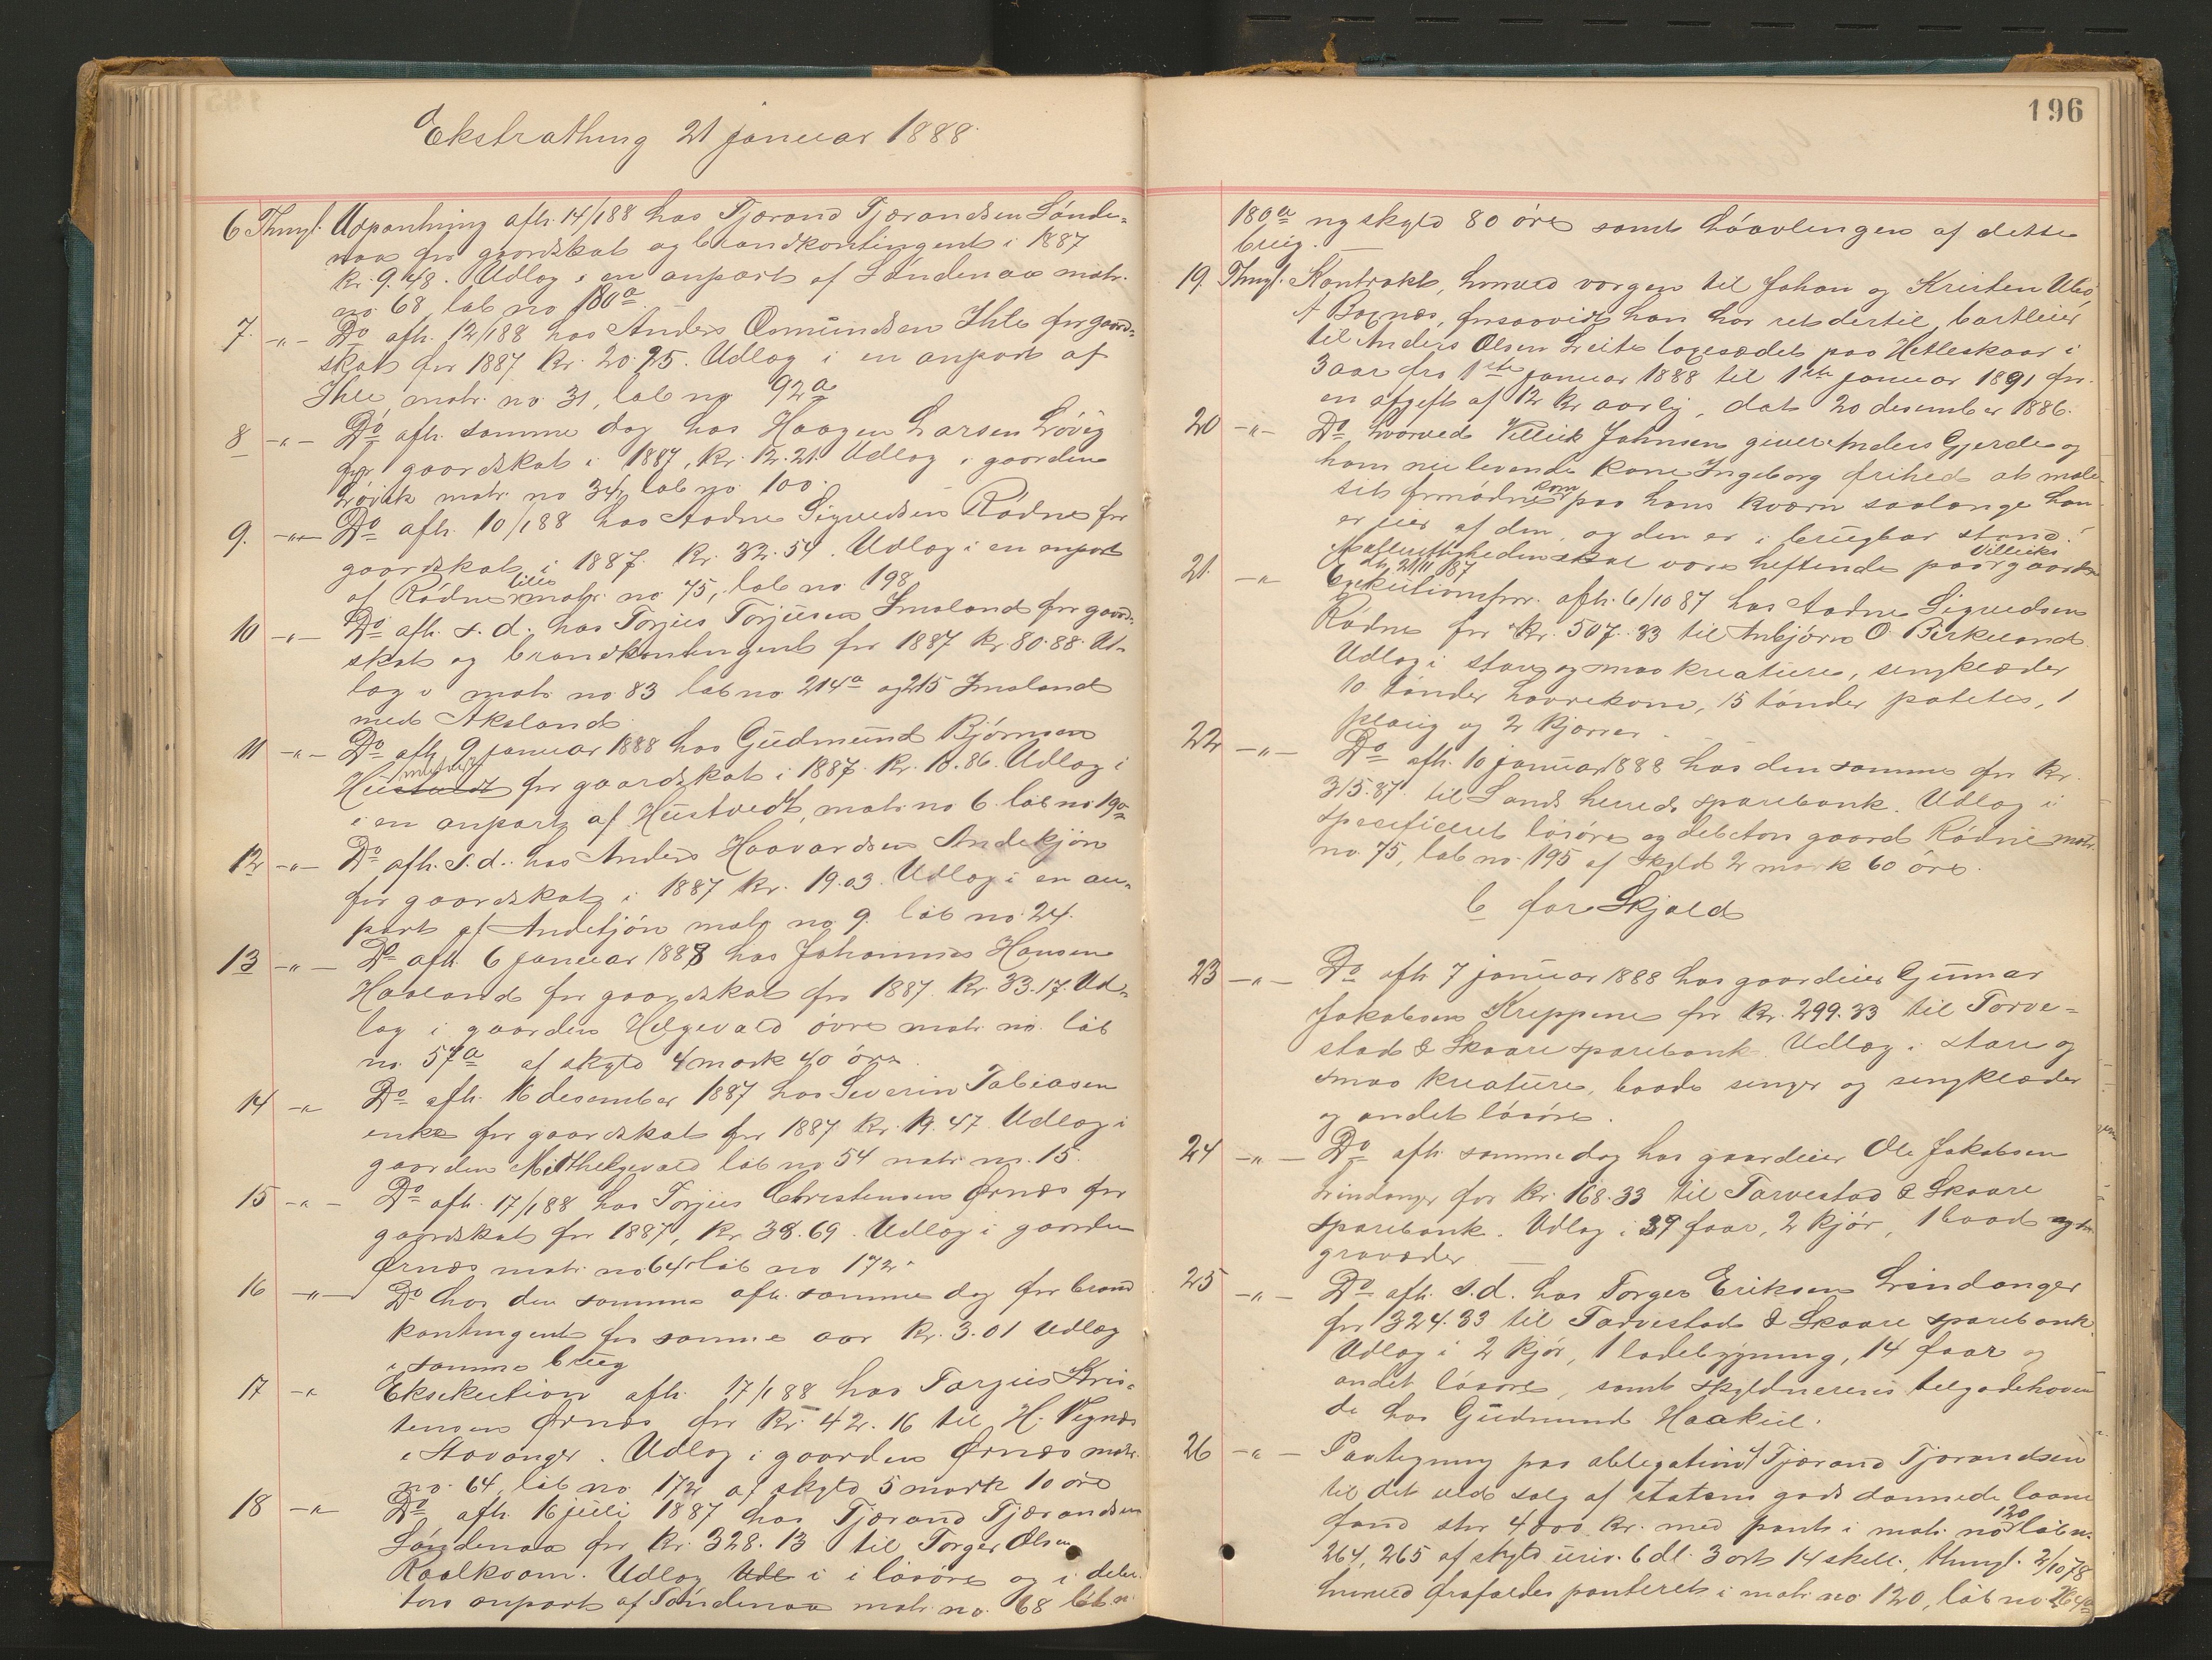 Ekstrathing 21 januar 1888
6 Thingl. Udpantning afh. 14/1 88 hos Tjærand Tjærandsen Sønde-
naa for gaardskat og brandkontingent i 1887
kr. 9.48. Udlæg i en anpart af Søndenaa matr.
no. 68, løb no 180a.
7. -"- Do afh. 12/1 88 hos Anders Osmundsen Ihle for gaard-
skat for 1887 Kr. 20.95. Udlæg i en anpart af
Ihle matr. no 31, løb no 92a
8 -"- Do afh. samme dag hos Haagen Larsen Løvig
for gaardskat i 1887, Kr. 12.21. Udlæg i gaarden
Løvik matr. no 34, løb no 100.
9. -"- Do afh. 10/1 88 hos Aadne Sigvedsen Rødne for
gaardskat i 1887. Kr. 32.54. Udlæg i en anpart
af Rødne lille matr. no 75, løb no 198
10 -"- Do afh. s. d. hos Torjus Torjusen Imsland for gaard-
skat og brandkontingent for 1887 Kr 80.88. Ud-
læg i matr. no 83 løb no 214a og 215 Imsland
med Aksland
11 -"- Do afh. 9 januar 1888 hos Gudmund Bjørnsen
for gaardskat i 1887. Kr. 18.86. Udlæg i
i en anpart af Hustvedt, matr. no 6. løb no 19a
12 -"- Do afh. s. d. hos Anders Haavardsen Andekjøn
for gaardskat i 1887 Kr. 19.03. Udlæg i en an-
part af Andekjøn matr. no 9. løb no 24.
13 -"- Do afh. 6 januar 1888 hos Johannes Hansen
Haaland for gaardskat for 1887. Kr. 33.17. Ud-
læg i gaarden Helgevold øvre matr. no. løb
no. 57a af skyld 4 mark 40 øre
14 -"- Do afh. 16 desember 1887 hos Severin Tobiasen
enke for gaardskat for 1887 Kr. 19.47. Udlæg i
gaarden Midthelgevold løb no 54 matr. no. 15.
15 -"- Do afh. 17/1 88 hos Torjus Christensen Ørnes for
gaardskat for 1887, Kr 38.69. Udlæg i gaarden
Ørnes matr. no 64 løb no 172.
16 -"- Do hos den samme afh. samme dag for brand
kontingent for samme aar Kr. 3.01 Udlæg
i samme brug
17 -"- Eksekution afh. 17/1 88 hos Torjus Kris-
tensen Ørnes for Kr. 42.16 til H. Vignes
i Stavanger. Udlæg i gaarden Ørnes matr.
no. 64, løb no 172 af skyld 5 mark 10 øre
18 -"- Do afh. 16 juli 1887 hos Tjærand Tjærandsen
Søndenaa for Kr. 328.13 til Torger Olsen
Raalkvam. Udlæg Udl i i løsøre og i debi-
tors anpart af Søndenaa matr. no. 68 løb n.
196
180a ny skyld 80 øre samt høavlingen af dette
brug.
19. Thingl. Kontrakt, hvorved værgen til Johan og Kristen Ubø,
A Boknes, forsaavidt han har ret dertil, bortleier
til Anders Olsen Leite laxesædet paa Hetleskaar i
3 aar fra 1ste januar 1888 til 1ste januar 1891 for
en afgift af 12 Kr aarlig, dat. 20 desember 1886.
20 -"- Do hvorved Villick Johnsen giver Anders Gjerde og
hans nulevende kone Ingeborg frihed at male
sit fornødne korn paa hans kværn saalænge han
er eier af den, og den er i brugbar stand.
skal være heftende paa Villicks gaard
dt. 21/11 87
21. -"- Exekutionsforr. afh. 6/10 87 hos Aadne Sigvedsen
Rødne for Kr. 507.33 til Anbjørn O. Birkeland
Udlæg i store og smaa kreature, sengklæder
10 tønder havrekorn, 15 tønder potetes, 1
ploug og 2 kjærrer.
22 -"- Do afh. 10 januar 1888 hos den samme for Kr.
315.87. til Sands herreds sparebank. Udlæg i
specificeret løsøre og debitors gaard Rødne matr.
no. 75, løb no. 195 af skyld 2 mark 60 øre.
C for Skjold
23 -"- Do afh 7 januar 1888 hos gaardeier Gunnar
Jakobsen Kreppene for Kr. 299.33 til Torve-
stad & Skaare sparebank. Udlæg i store og
smaa kreature, baade senger og sengklæder
og andet løsøre.
24 -"- Do afh samme dag hos gaardeier Ole Jakobsen
Lindanger for Kr. 168.33 til Tarvestad & Skaare
sparebank. Udlæg i 39 faar, 2 kjør, 1 baad og
25 -"- Do afh. s. d. hos Torger Eriksen Lindanger
for 324.33 til Tarvestad & Skaare sparebank.
Udlæg i 2 kjør, 1 ladebygning, 14 faar og
andet løsøre, samt skyldnerens tilgodehaven
de hos Gudmund Haakul.
26 -"- Paategning paa obligation f Tjærand Tjærandsen
til det ved salg af statens gods dannede laane
fond stor 4000 kr. med pant i matr. no 120 løb n.
264, 265 af skyld uriv. 6 dl. 3 ort 14 skill., thingl. 2/10 78
hvorved frafaldes panteret i matr. no 120, løb no. 264a